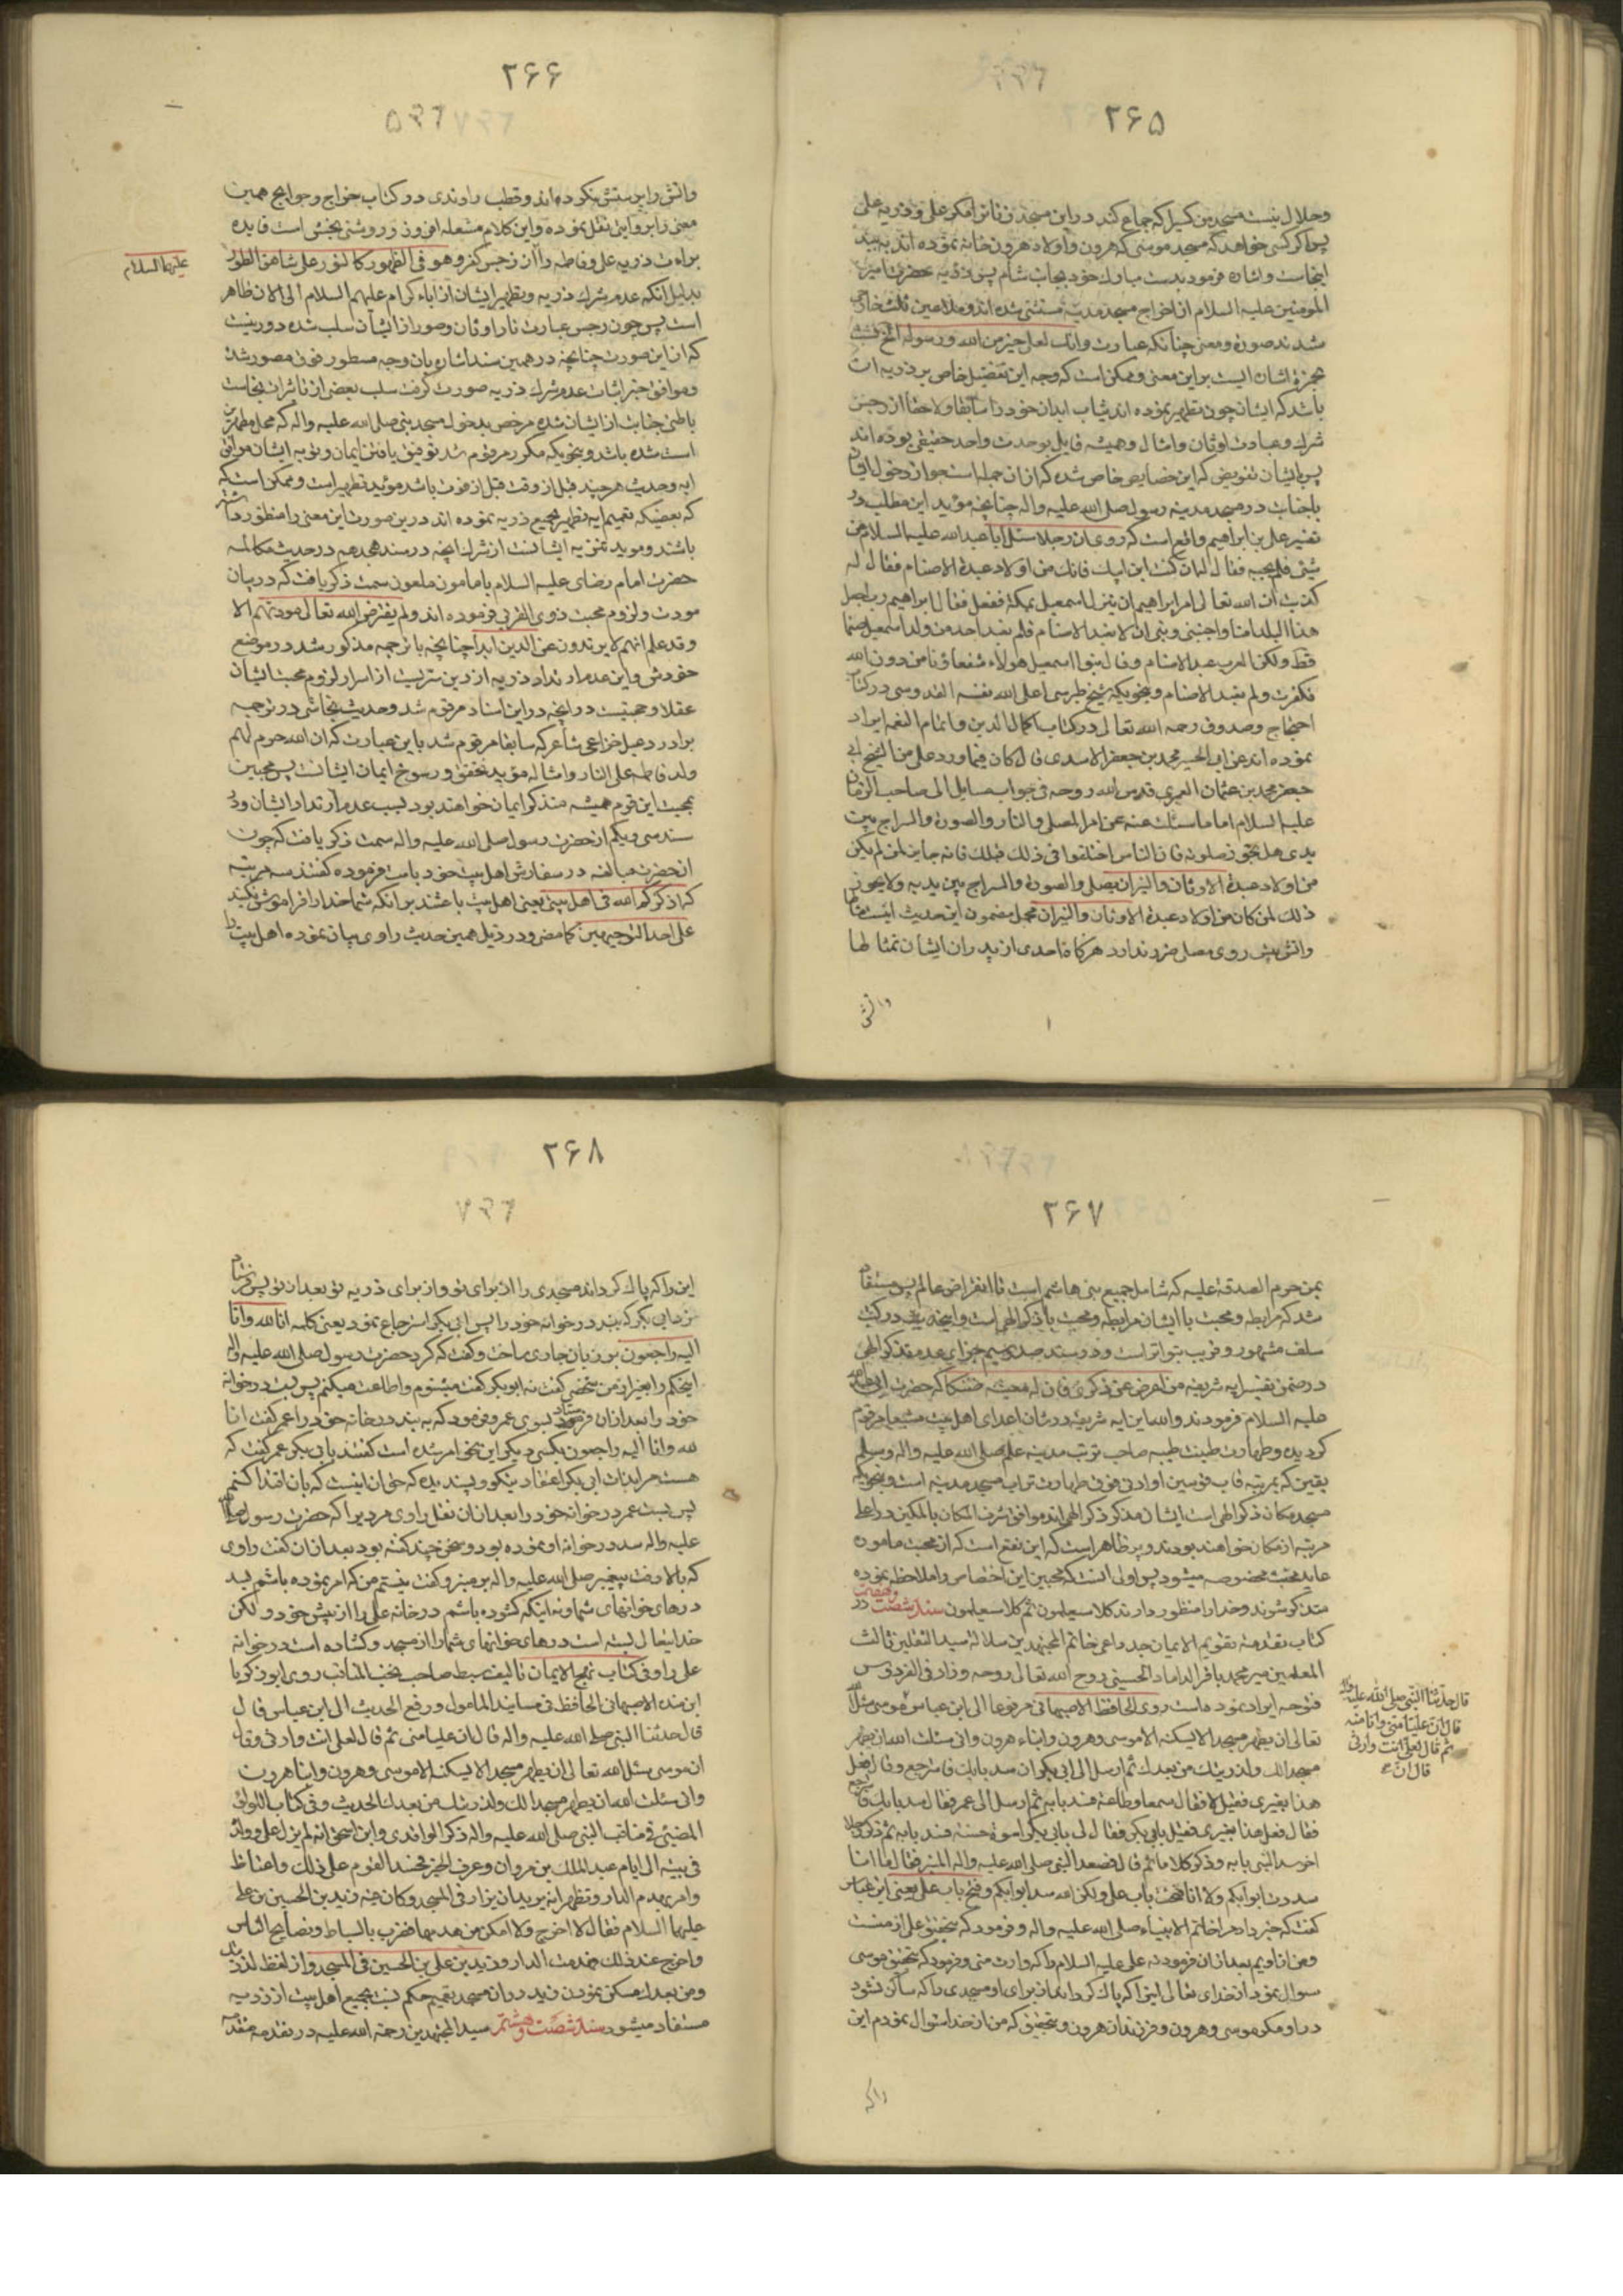 ۲۶۵
وحلال نیست مسجد من کسیرا که جماع کند در این مسجد زنانرا مگر علی و ذریه علی
پس اگر کسی خواهد که مسجد موسی که هرون و اولاد هرون خانه نموده اند به بیند
اینجاست و اشاره فرمود بدست مبارک خود بجانب شام پس ذریه حضرت امیر
المومنین علیه السلام از اخراج مسجد مدینه مستثنی شده اند
شدند صورة و معنی چنانکه عبارت وانک لعلی خیر من الله و رسوله
باشد که ایشان چون تطهیر نموده اند ثیاب ابدان خود را سابقا ولاحقا از رجس
شرک و عبادت اوثان و امثال و همیشه قایل بوحدت واحد حقیقی بوده اند
باجناب در مسجد مدینه رسول صلی الله علیه واله چنانچه مؤید این مطلب در
تفسیر علی بن ابراهیم واقع است که روی ان رجلا سئل ابا عبد الله علیه السلام عن
شیئ فلم یجبه فقال له ان کنت ابن ابیک فانک من اولاد عبدة الاصنام فقال له
کذبت ان الله تعالی امر ابراهیم ان ینزل اسمعیل بمکة ففعل فقال ابراهیم رب اجعل
هذا البلد امنا واجنبنی وبنی ان نعبد الاصنام فلم یعبد احد من ولد اسمعیل صنما
قط ولکن العرب عبد الاصنام وقال بنوا اسمعیل هولاء شفعاؤنا من دون الله
فکفرت ولم تعبد الاصنام و بنحویکه شیخ طبرسی اعلی الله نفسه القدوسی در کتاب
احتجاج وصدوق رحمه الله تعالی در کتاب اکمال الدین و اتمام النعمه ایراد
نموده اند عن ابی الحسین محمد بن جعفر الاسدی قال کان فیما ورد علی من الشیخ ابی
جعفر محمد بن عثمان العمری قدس الله روحه فی جواب مسایل الی صاحب الزمان
علیه السلام اما ما سئلت عنه عن امر المصلی والنار والصورة والسراج بین
یدی هل یجوز صلوته فان الناس اختلفوا فی ذلک قبلک فانه جایز لمن لم یکن
من اولاد عبدة الاوثان والنیران یصلی والصورة والسراج بین یدیه ولا یجوز
ذلک لمن کان من اولاد عبدة الاوثان والنیران مجمل مضمون این حدیث اینست
واتش پیش روی مصلی ضرر ندارد هرگاه احدی از پدران ایشان تمثالها
واتش
۲۶۶
واتش را پرستش نکرده اند وقطب راوندی در کتاب خرایج و جرایح همین
معنی را بروایتی نقل نموده و این کلام مشعله افروز و روشنی بخش است فایده
براءت ذریه علی وفاطمه را از رجس کفر وهو فی الظهور کالنور علی شاهق الطور
علیهما السلام
بدلیل انکه عدم شرک ذریه وتطهیر ایشان از اباء کرام علیهم السلام الی الان ظاهر
است پس چون رجس عبارت نار و اوثان وصور از ایشان سلب شده دور نیست
که از این صورت چنانچه در همین سند اشاره بان وجه مسطور فوق مصور شد
وموافق خبر اثبات عدم شرک ذریه صورت گرفت سلب بعضی از تاثیرات نجاست
باطنی جنابت از ایشان شده مرخص بدخول مسجد نبی صلی الله علیه واله که محل مطهر
است شده باشد وبنحویکه مکرر مرقوم شد توفیق یافتن ایمان وتوبه ایشان موافق
ایه وحدیث هرچند قبل از وقت قبل از فوت باشد مؤید تطهیر است وممکن است که
که بعضیکه تعمیم ایه تطهیر بجمیع ذریه نموده اند درین صورت این معنی را منظور داشته
باشند وموید تنزیه ایشانست از شرک انچه در سند هیجدهم در حدیث مکالمه
حضرت امام رضای علیه السلام با مامون ملعون سمت ذکر یافت که در بیان
مودت ولزوم محبت ذوی القربی فرموده اند ولم یفترض الله تعالی مودتهم الا
وقد علم انهم لا یرتدون عن الدین ابدا چنانچه با ترجمه مذکور شد در موضع
خودش واین عدم ارتداد ذریه از دین سریست از اسرار لزوم محبت ایشان
برادر دعبل خزاعی شاعر که سابقا مرقوم شد باین عبارت که ان الله حرم لهم
ولد فاطمه علی النار وامثاله مؤید تحقق ورسوخ ایمان ایشانست پس محبین
بمحبت این قوم همیشه متذکر ایمان خواهند بود بسبب عدم ارتداد ایشان ودر
سند سی ویکم از حضرت رسول صلی الله علیه واله سمت ذکر یافت که چون
انحضرت مبالغه در سفارش اهل بیت خود بامت فرموده گفتند سه مرتبه
که اذکرکم الله فی اهل بیتی یعنی اهل بیت باعثند بر انکه شما خدا را فراموش نکنید
علی احد التوجیهین کما مضی ودر ذیل همین حدیث راوی بیان نموده اهل بیت را
۲۶۷
بمن حرم الصدقة علیه که شامل جمیع بنی هاشم است تا انقراض عالم پس مستفاد
شد که رابطه ومحبت با ایشان مرابطه ومحبت با ذکر الهی است
سلف مشهور وقریب بتواتر است ودر سند صد وسیم جزای عدم تذکر الهی
در ضمن تفسیر ایه شریفه من اعرض عن ذکری فان له معیشة ضنکا که حضرت
علیه السلام فرمودند والله این ایه شریفه در شان اعدای اهل بیت
گردیده وطهارت طینت طیبه صاحب تربت مدینه علم صلی الله علیه واله وسلم
یقین که بمرتبه قاب قوسین او ادنی فوق طهارت تراب مسجد مدینه است
مسجد مکان ذکر الهی است ایشان مذکر ذکر الهی اند موافق شرف المکان بالمکین در اعلی
مرتبه از مکان خواهند بود
عاید محبت مخصوصه میشود پس اولی انست که محبین این اختصاص را ملاحظه نموده
متذکر شوند وخدا را منظور دارند کلا سیعلمون ثم کلا سیعلمون سند شصت وهفتم در
کتاب تقدمة تقویم الایمان جد داعی خاتم المجتهدین سلالة سید الثقلین ثالث
المعلمین میر محمد باقر الداماد الحسینی روح الله تعالی روحه وزاد فی الفردوس
فتوحه ایراد نموده است روی الحافظ الاصبهانی مرفوعا الی ابن عباس موسی سئل الله
قال حدثنا النبی صلی الله علیه واله
قال ان علیا منی وانا منه
ثم قال لعلی انت وارثی
قال ان
تعالی ان یطهر مسجدا لا یسکنه الا موسی وهرون وابناء هرون وانی سئلت الله ان یطهر
مسجدا لک ولذریتک من بعدک ثم ارسل الی ابی بکر ان سد بابک فاسترجع وقال افعل
هذا بغیری فقیل لا فقال سمعا وطاعة فسد بابه ثم ارسل الی عمر فقال سد بابک
فقال فعل هذا بغیری فقیل بابی بکر فقال لی بابی بکر اسوة حسنة فسد بابه ثم ذکر رجلا
اخر سد النبی بابه وذکر کلاما ثم قال فصعد النبی صلی الله علیه واله المنبر فقال ما انا
سددت ابوابکم ولا انا فتحت باب علی ولکن الله سد ابوابکم وفتح باب علی یعنی ابن عباس
گفت که خبر داد مرا خاتم الانبیاء صلی الله علیه واله وفرمود که بتحقیق علی از منست
ومن از اویم بعد از ان فرمود به علی علیه السلام را که وارث منی وفرمود که بتحقیق موسی
سوال نمود از خدای تعالی اینرا که پاک گرداند از برای او مسجدی را که ساکن نشود
در او مگر موسی وهرون وفرزندان هرون وبتحقیق که من از خدا سئوال نمودم این
را که
۲۶۸
این را که پاک گرداند مسجدی را از برای تو واز برای ذریه تو بعد از تو پس فرستاد
نزد ابی بکر که ببند در خوانه خود را پس ابی بکر استرجاع نمود یعنی کلمه انا لله وانا
الیه راجعون بر زبان جاری ساخت وگفت که کرد حضرت رسول صلی الله علیه واله
اینحکم را بغیر از من شخصی گفت نه ابوبکر گفت میشنوم واطاعت میکنم پس بست در خوانه
خود را بعد از ان فرستاد بسوی عمر وفرمود که به بند در خانه خود را عمر گفت انا
لله وانا الیه راجعون بکسی دیگر این نحو امر شده است گفتند بابی بکر عمر گفت که
هست مرا بذات ابی بکر اعتقاد نیکو وپسندیده که خوان اینست که بان اقتدا کنم
پس بست عمر در خوانه خود را بعد از ان نقل راوی مردیرا که حضرت رسول صلی الله
علیه واله سد در خوانه او نموده بود وسخنی چند گفته بود بعد از ان گفت راوی
که بالا رفت پیغمبر صلی الله علیه واله بر منبر وگفت نیستم من که امر نموده باشم بسد
درهای خوانهای شما ونه اینکه گشوده باشم در خانه علی را از پیش خود ولکن
خدایتعالی بسته است درهای خوانهای شما را از مسجد وگشاده است در خوانه
علی را وفی کتاب نهج الایمان تالیف سبط صاحب نخب المناقب روی ابو زکریا
ابن منده الاصبهانی الحافظ فی مسانید المامول ورفع الحدیث الی ابن عباس قال
قال حدثنا النبی صلی الله علیه واله قال ان علیا منی ثم قال لعلی انت وارثی وقال
ان موسی سئل الله تعالی ان یطهر مسجدا لا یسکنه الا موسی وهرون وابنا هرون
وانی سئلت الله ان یطهر مسجدا لک ولذریتک من بعدک الحدیث وفی کتاب اللوائح
المضیئی فی مناقب النبی صلی الله علیه واله ذکر الواقدی وابن اسحق انه لم یزل علی وولده
فی بیته الی ایام عبد الملک بن مروان وعرف الخبر فحسد القوم علی ذلک واغتاظ
وامر بهدم الدار وتظهر انه یرید ان یزار فی المسجد وکان فیه زید بن الحسین بن علی
علیهما السلام فقال لا اخرج ولا امکن من هدمها فضرب بالسیاط وتصایح الناس
واخرج عند ذلک فهدمت الدار وزید بن علی بن الحسین فی المسجد واز لفظ لذریتک
ومن بعدک مسکن نمودن زید در ان مسجد تعمیم حکم نسبت بجمیع اهل بیت از ذریه
مستفاد میشود سند شصت وهشتم سید المجتهدین رحمة الله علیه در تقدمه